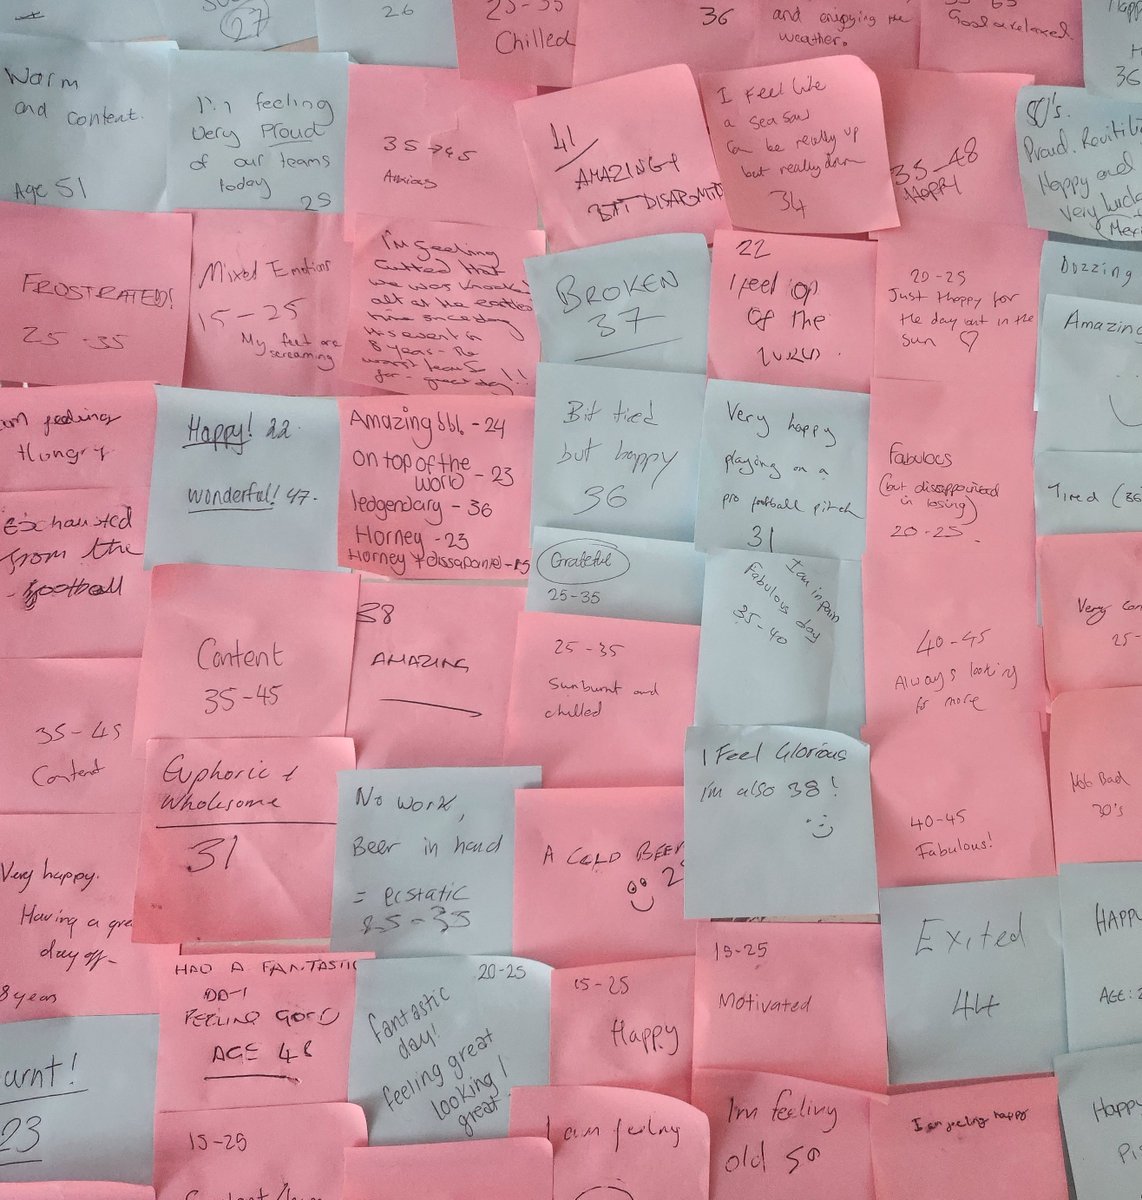 27
26
25-35
Chilled
36
and enjoying the
weather.
Good & relaxed.
Happy
36
Warm
and content.
Age 51
I'm feeling
very Proud
of our teams
today
25
35-45
41
AMAZING +
BIT DISAPOINTE
I Feel Like
a sea saw
Can be really up
but really down
34
35-48
Happy
50's.
Proud.
Happy and
very lucky
FROSTRATED!
25-35
Mixed Emotions
15-25
My feet are
screaming
I'm feeling
Gutted that
we was knocked
out at the
time since day
this event in
8 years - the
great day!!
BROKEN
37
22
I feel on
of the
20-25
Just Happy for
the day out in the
sun ♡
Dozzing
Amazing
am feeling
Hungry
Happy! 22
wonderful! 47.
Amazing bbl - 24
on top of the
world - 23
ledgendary - 36
Horney - 23
Horney + dissapointed - 25
Bit tired
but happy
36
Very happy
playing on a
pro football pitch
31
Fabulous
(but disappointed
in losing)
20-25.
Tired (36
Exchausted
from the
football
Grateful
25-35
I am in pain
Fabulous day
35-40
Content
35-45
38
AMAZING
25-35
Sunburnt and
chilled
40-45
Always looking
for more
Very con
25-
35-45
Content
Euphoric +
Wholesome
31
No work,
Beer in hand
= ecstatic
25-35
A COLD BEER
2
I Feel Glorious
I'm also 38!
40-45
Fabulous!
Not Bad
30's
Very happy.
Having a grea
day off
8 years
HAD A FANTASTIC
DAY
FEELING GOOD
AGE 48
20-25
fantastic
day!
feeling great
looking
great!
15-25
Happy
15-25
Motivated
Exited
44
HAPPY
AGE: 2
urnt!
23
15-25
I am feeling
I'm feeling
old 50
I am feeling happy
Happy